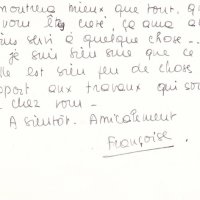 montrera mieux que tout. qu
vous êtes, ça aura a
ins servi à quelque chose -
je suis bien sûre que ce
lle est bien peu de chose
pport aux travaux qui so
chez vous -
A bientôt. Amicalement
Françoise